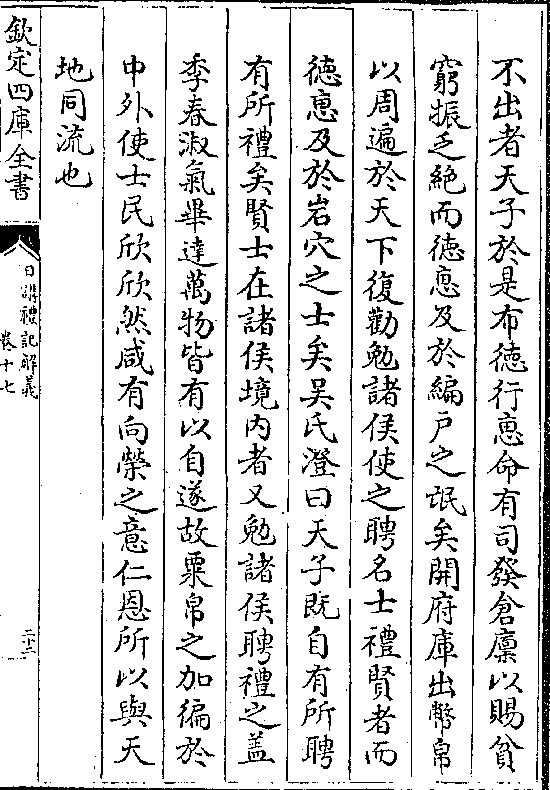 不出者天子於是布德行恵命有司發倉廩以賜貧
窮振乏絶而徳恵及於編戸之氓矣開府庫出幣帛
以周遍於天下復勸勉諸侯使之聘名士禮賢者而
徳恵及於岩穴之士矣吴氏澄曰天子既自有所聘
有所禮矣賢士在諸侯境内者又勉諸侯聘禮之盖
季春淑氣畢達萬物皆有以自遂故粟帛之加徧於
中外使士民欣欣然咸有向榮之意仁恩所以與天
地同流也
欽定四庫全書
日講禮記解義
卷十七
二十二